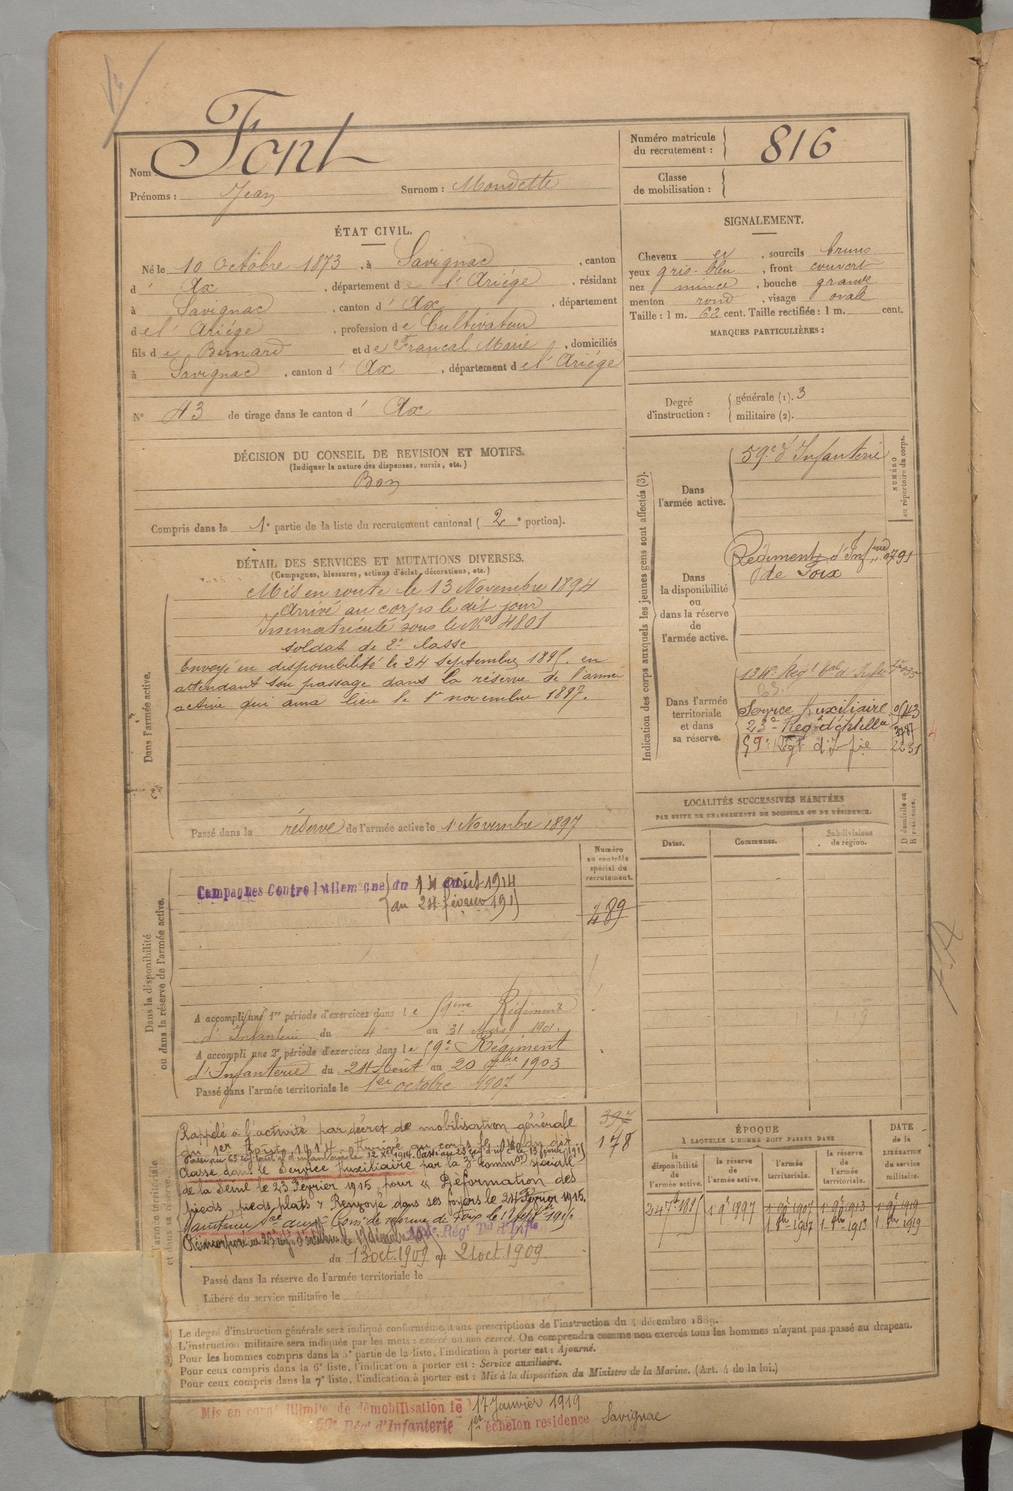 Nom : Font
Prénoms : Jean Surnom : Mondette
Numéro matricule du recrutement : 816
Classe de mobilisation :
ÉTAT CIVIL.
Né le 10 Octobre 1873, à Savignac, canton
d' Ax, département de l'Ariége, résidant
à Savignac, canton d' Ax, département
de l' Ariége, profession de Cultivateur
fils de Bernard et de Francal Marie, domiciliés
à Savignac, canton d' Ax, département de l'Ariége
N° 43 de tirage dans le canton d' Ax
SIGNALEMENT.
Cheveux et, sourcils bruns
yeux gris-bleu, front couvert
nez mince, bouche grande
menton rond, visage ovale
Taille : 1 m. 62 cent. Taille rectifiée : 1 m. cent.
MARQUES PARTICULIÈRES :
Degré d'instruction : générale (1). 3
militaire (2).
DÉCISION DU CONSEIL DE REVISION ET MOTIFS.
(Indiquer la nature des dispenses, sursis, etc.)
Bon
Compris dans la 1e partie de la liste du recrutement cantonal ( 2e portion).
DÉTAIL DES SERVICES ET MUTATIONS DIVERSES.
(Campagnes, blessures, actions d'éclat, décorations, etc.)
Dans l'armée active.
Mis en route le 13 Novembre 1894
Arrivé au corps le dit jour
Immatriculé sous le No 4801
soldat de 2e classe
Envoyé en disponibilité le 24 septembre 1895, en
attendant son passage dans la réserve de l'armée
active qui aura lieu le 1er novembre 1897.
Passé dans la réserve de l'armée active le 1 Novembre 1897
Indication des corps auxquels les jeunes gens sont affectés (3).
NUMÉRO au répertoire du corps.
Dans l'armée active.
59e d'Infanterie
Dans la disponibilité ou dans la réserve de l'armée active.
Régiment d'Infrie
de Foix
Dans l'armée territoriale et dans sa réserve.
Service Auxiliaire
23e Regt d'Artillie
59e Rgt d'Inf ie 2231
LOCALITÉS SUCCESSIVES HABITÉES
PAR SUITE DE CHANGEMENTS DE DOMICILE OU DE RÉSIDENCE.
Dates. Communes. Subdivisions de région. D domicile ou R résidence.
Dans la disponibilité ou dans la réserve de l'armée active.
Numéro au contrôle spécial du recrutement.
Campagnes Contre l'Allemagne du août 1914
au 24 février 1915
489
A accompli une 1re période d'exercices dans le 59ème Régiment
d'Infanterie du 4 au 31 Mars 1901.
A accompli une 2e période d'exercices dans le 59e Régiment
d'Infanterie du 24 Août au 20 7bre 1903
Passé dans l'armée territoriale le 1er octobre 1907
Rappelé à l'activité par décret de mobilisation générale
du 1er Août 1914. Arrivé au corps le
Classé dans le Service Auxiliaire par la Common spéciale
de la Seine le 23 Février 1915 pour " Déformation des
pieds, pieds plats " Renvoyé dans ses foyers le 24 février 1915.
178
134e Régt Tal d'Infie
du 13 oct. 1909 au 21 oct. 1909
Passé dans la réserve de l'armée territoriale le
Libéré du service militaire le
ÉPOQUE
À LAQUELLE L'HOMME DOIT PASSER DANS
DATE de la LIBÉRATION du service militaire.
la disponibilité de l'armée active. la réserve de l'armée active. l'armée territoriale. la réserve de l'armée territoriale.
24 7bre 1895 1 9bre 1897 1 8bre 1907 1 8bre 1913 1 8bre 1919
Le degré d'instruction générale sera indiqué conformément aux prescriptions de l'instruction du 4 décembre 1889.
L'instruction militaire sera indiquée par les mots : exercé ou non exercé. On comprendra comme non exercés tous les hommes n'ayant pas passé au drapeau.
Pour les hommes compris dans la 5e partie de la liste, l'indication à porter est : Ajourné.
Pour ceux compris dans la 6e liste, l'indication à porter est : Service auxiliaire.
Pour ceux compris dans la 7e liste, l'indication à porter est : Mis à la disposition du Ministre de la Marine. (Art. 4 de la loi.)
Mis en congé illimité de démobilisation le 17 Janvier 1919
59e Rég d'Infanterie 1er échelon residence Savignac